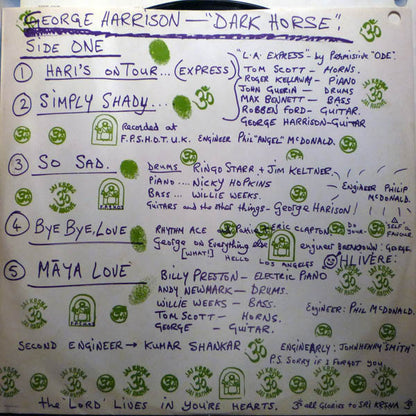 GEORGE HARRISON — "DARK HORSE",
SIDE ONE
① HARI'S ON TOUR... (EXPRESS)
"L.A. EXPRESS" - by PERMISSIVE "ODE".
TOM SCOTT — HORNS.
ROGER KELLAWAY — PIANO
JOHN GUERIN — DRUMS
MAX BENNETT — BASS
ROBBEN FORD — GUITAR.
GEORGE HARRISON — GUITAR
② SIMPLY SHADY...
Recorded at
F.P.S.H.O.T. U.K. ENGINEER PHIL "ANGEL" McDONALD.
③ SO SAD.
DRUMS RINGO STARR + JIM KELTNER.
PIANO .... NICKY HOPKINS
BASS ... WILLIE WEEKS.
GUITARS and the other things - GEORGE HARISON!
ENGINEER PHILIP McDONALD.
④ BYE BYE, LOVE
RHYTHM ACE ERIC CLAPTON.
George on Everything else
[WHAT!]
HELLO LOS ANGELES
engineer GEORGE.
OHLIVERE:
⑤ MĀYA LOVE
BILLY PRESTON — ELECTRIC PIANO
ANDY NEWMARK — DRUMS.
WILLIE WEEKS — BASS.
TOM SCOTT — HORNS.
GEORGE — GUITAR.
ENGINEER: PHIL McDONALD.
SECOND ENGINEER → KUMAR SHANKAR
ENGINEARLY: JOHN HENRY "SMITH"
P.S. SORRY IF I FORGOT YOU
the 'LORD' LIVES IN YOU'RE HEARTS. ॐ all Glories to SRI KRSNA ॐ